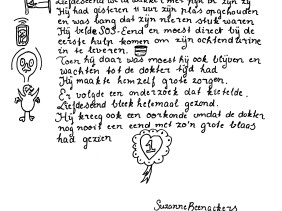 Liefdeseend
Hij had gisteren 11 uur zijn plas opgehouden
en was bang dat zijn nieren stuk waren
Hij belde SOS-Eend en moest direct bij de
eerste hulp komen om zijn ochtendurine
in te leveren.
Toen hij daar was moest hij ook blijven en
wachten tot de dokter tijd had
Hij maakte hemzelf grote zorgen.
Er volgde een onderzoek dat kietelde.
Liefdeseend bleek helemaal gezond.
Hij kreeg ook een oorkonde omdat de dokter
nog nooit een eend met zo'n grote blaas
had gezien
1
Suzanne Beenackers